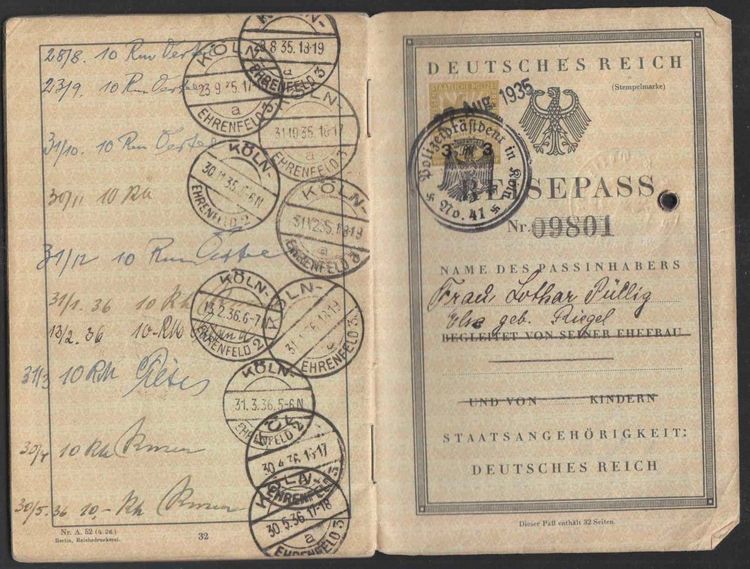 28/8. 10 Rm
KÖLN-
8.35.18-19
a
EHRENFELD 3
23/9. 10 Rm
KÖLN-
23.9.35.17
EHRENFELD 3
31/10. 10 Rm
KÖLN-
31.10.35.16-17
a
EHRENFELD 3
30/11 10 Rk
KÖLN-
30.11.35.
EHRENFELD 2
31/12 10 Rm
KÖLN-
31.12.35.18-19
a
EHRENFELD 3
31/1. 36 10 Rk
KÖLN-
36.
EHRENFELD 3.
13/2. 36 10.-Rk
KÖLN-
13.2.36.6-7
EHRENFELD 2
31/3 10 Rk
KÖLN-
31.3.36.5-6N
EHRENFELD 2
30/4 10 Rk
30.4.36.16-17
EHRENFELD 3.
30/5.36 10.- Rk
KÖLN-
30.5.36.17-18
a
EHRENFELD 3
Nr. A. 52 (4. 26.)
Berlin, Reichsdruckerei.
32
DEUTSCHES REICH
(Stempelmarke)
Aug. 1935
Polizeipräsident in Köln
No. 41
3 3
REISEPASS
Nr. 09801
NAME DES PASSINHABERS
Frau Lothar Püllig
Else geb. Riegel
BEGLEITET VON SEINER EHEFRAU
UND VON KINDERN
STAATSANGEHÖRIGKEIT:
DEUTSCHES REICH
Dieser Paß enthält 32 Seiten.